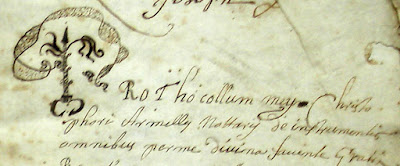 Joseph
Prothocollum mey Christo
phori Armilly Nottary de instrumentis
omnibus per me divina favente gratia